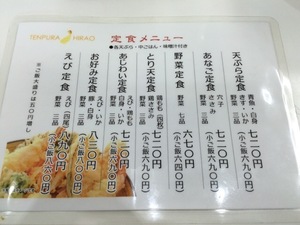 TENPURA HIRAO
定食メニュー
●各天ぷら・中ごはん・味噌汁付き
天ぷら定食
青魚・白身
きす・いか
野菜 三品
七二〇円
(小ご飯 六九〇円)
あなご定食
穴子
ささみ
野菜 三品
七二〇円
(小ご飯 六九〇円)
野菜定食
野菜 七品
六七〇円
(小ご飯 六四〇円)
とり天定食
鶏もも(四枚)
野菜 三品
七二〇円
(小ご飯 六九〇円)
あじわい定食
えび・鶏もも
白身・いか
野菜 三品
七二〇円
(小ご飯 六九〇円)
お好み定食
えび・いか
豚・白身
野菜 三品
八三〇円
(小ご飯 八〇〇円)
えび定食
えび(四尾)
野菜 三品
八九〇円
(小ご飯 八六〇円)
※ご飯大盛りは五〇円増し